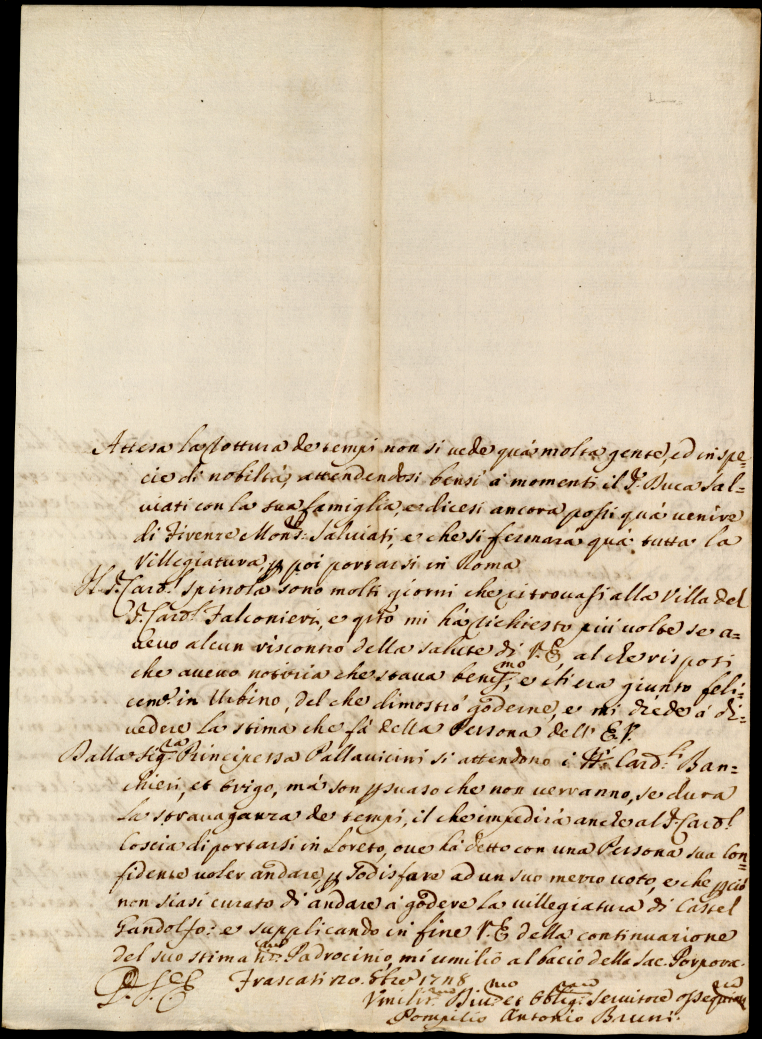 Attesa la rottura de tempi non si vede quà molta gente, ed in spe=
cie di nobiltà, attendendosi bensì à momenti il S. Duca Sal=
viati con la sua famiglia, e dicesi ancora possi quà venire
di Firenze Mons.r Salviati, e che si fermarà quà tutta la
Villegiatura, p poi portarsi in Roma
Il S. Card.l Spinola sono molti giorni che ritrovasi alla Villa del
S. Card.l Falconieri, e q̃sto mi hà richiesto più volte se a=
vevo alcun riscontro della salute di V. E., al che risposi
che avevo notitia che stava beniss.mo, e ch'era giunto feli=
cem.te in Urbino, del che dimostrò goderne, e mi diede à di=
vedere la stima che fà della Persona dell' E. V.
Dalla Sig.ra Principessa Pallavicini si attendono i SS.ri Card.li Ban=
chieri, et Origo, mà son psuaso che non verranno, se dura
la stravaganza de tempi, il che impedirà anche al S. Card.l
Coscia di portarsi in Loreto, ove hà detto con una Persona sua con=
fidente voler andare p sodisfare ad un suo mezzo voto, e che pciò
non siasi curato di andare à godere la villegiatura di Castel
Gandolfo: e supplicando in fine V. E. della continuazione
del suo stimatiss.mo Padrocinio, mi umilio al bacio della Sac. Porpora.
D. V. E. Frascati 20. 8bre 1728
Umiliss.mo Div.mo et Oblig.mo servitore ossequiosiss.mo
Pompilio Antonio Bruni.